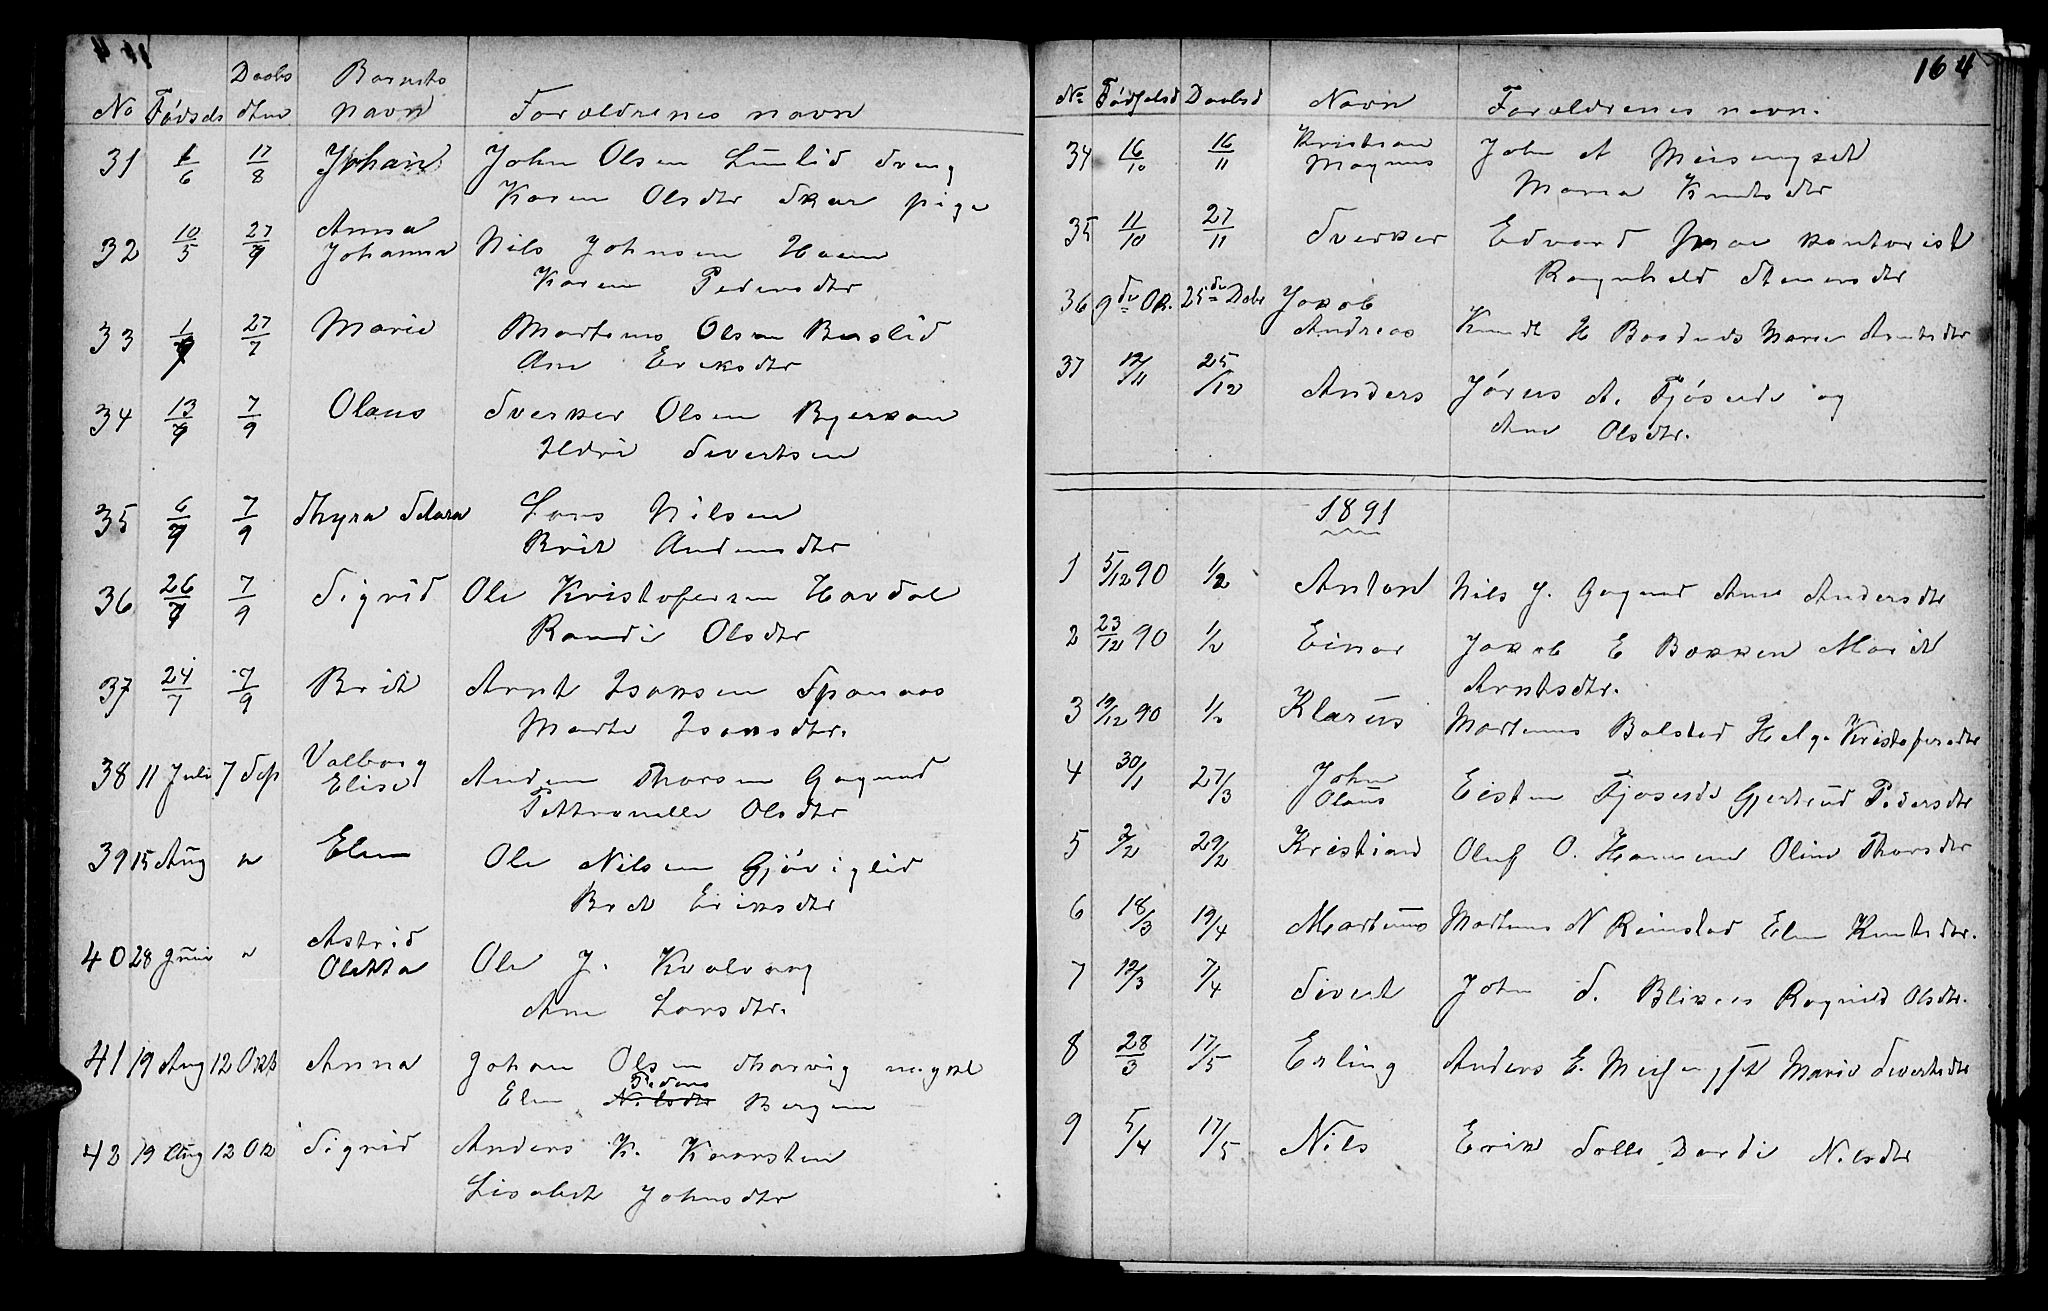 Daabs Barnets
No Fødsels dtm navn Forældrenes navn
31 1/6 17/8 Johan John Olsen Lunlid dreng
Karen Olsdtr Skar pige
32 10/5 27/7 Anna Johanna Nils Johnsen Hoem
Karen Pedersdtr
33 1/7 27/7 Marie Martinus Olsen
Ane Eriksdtr
34 13/7 7/9 Olaus Sverker Olsen Bjerkan
Ildri Sivertsen
35 6/7 7/9 Thyra Lars Nilsen
Brit Andersdtr
36 26/7 7/9 Sigrid Ole Kristofersen Havdal
Randi Olsdtr
37 24/7 7/9 Brit Arnt Isaksen
Marte Isaksdtr.
38 11 Juli 7 Sep Valborg Elise Anders Thorsen Gagnad
Pettronelle Olsdtr
39 15 Aug " Elen Ole Nilsen Gjøviglid
Brit Eriksdtr
40 28 Juni " Astrid Oletta Ole J. Kvalvaag
Ane Larsdtr.
41 19 Aug 12 Okt Anna Johan Olsen
Elen Nilsdtr Peders Bergem
42 19 Aug 12 Ok Sigrid Anders K. Kaarsten
Lisabet Johnsdtr
164
No Fødselsd Daabsd Navn Forældrenes navn.
34 16/10 16/11 Kristian Magnus John A Meisengset
Maria Knutsdtr
35 11/10 27/11 Sverker Edvard kontorist
Ragnhild Stenersdtr
36 9de Ok. 25de Debr Jakob Andreas Knudt H Marie Arntsdtr
37 12/11 25/12 Anders Jørus A. Fjøseide og
Ane Olsdtr.
1891
1 5/12 90 1/2 Anton Nils J. Gagnad Ane Andersdtr
2 23/12 90 1/2 Einar Jakob E Bakken Marit
Arntsdtr.
3 19/12 90 1/2 Klaus Martinus Bolstad Helge Kristofersdtr
4 30/1 27/3 John Olaus Eisten Fjøseide Gjertrud Pedersdtr
5 2/2 29/2 Kristian Oluf O. Oline Thorsdtr
6 18/3 19/4 Martinus Martinus N Rimstad Elen Knutsdtr.
7 12/3 7/4 Sivert John S. Ragnild Olsdtr.
8 28/3 17/5 Erling Anders E. Meisengset Marie Sivertsdtr
9 5/4 17/5 Nils Erik Solli Dordi Nilsdtr